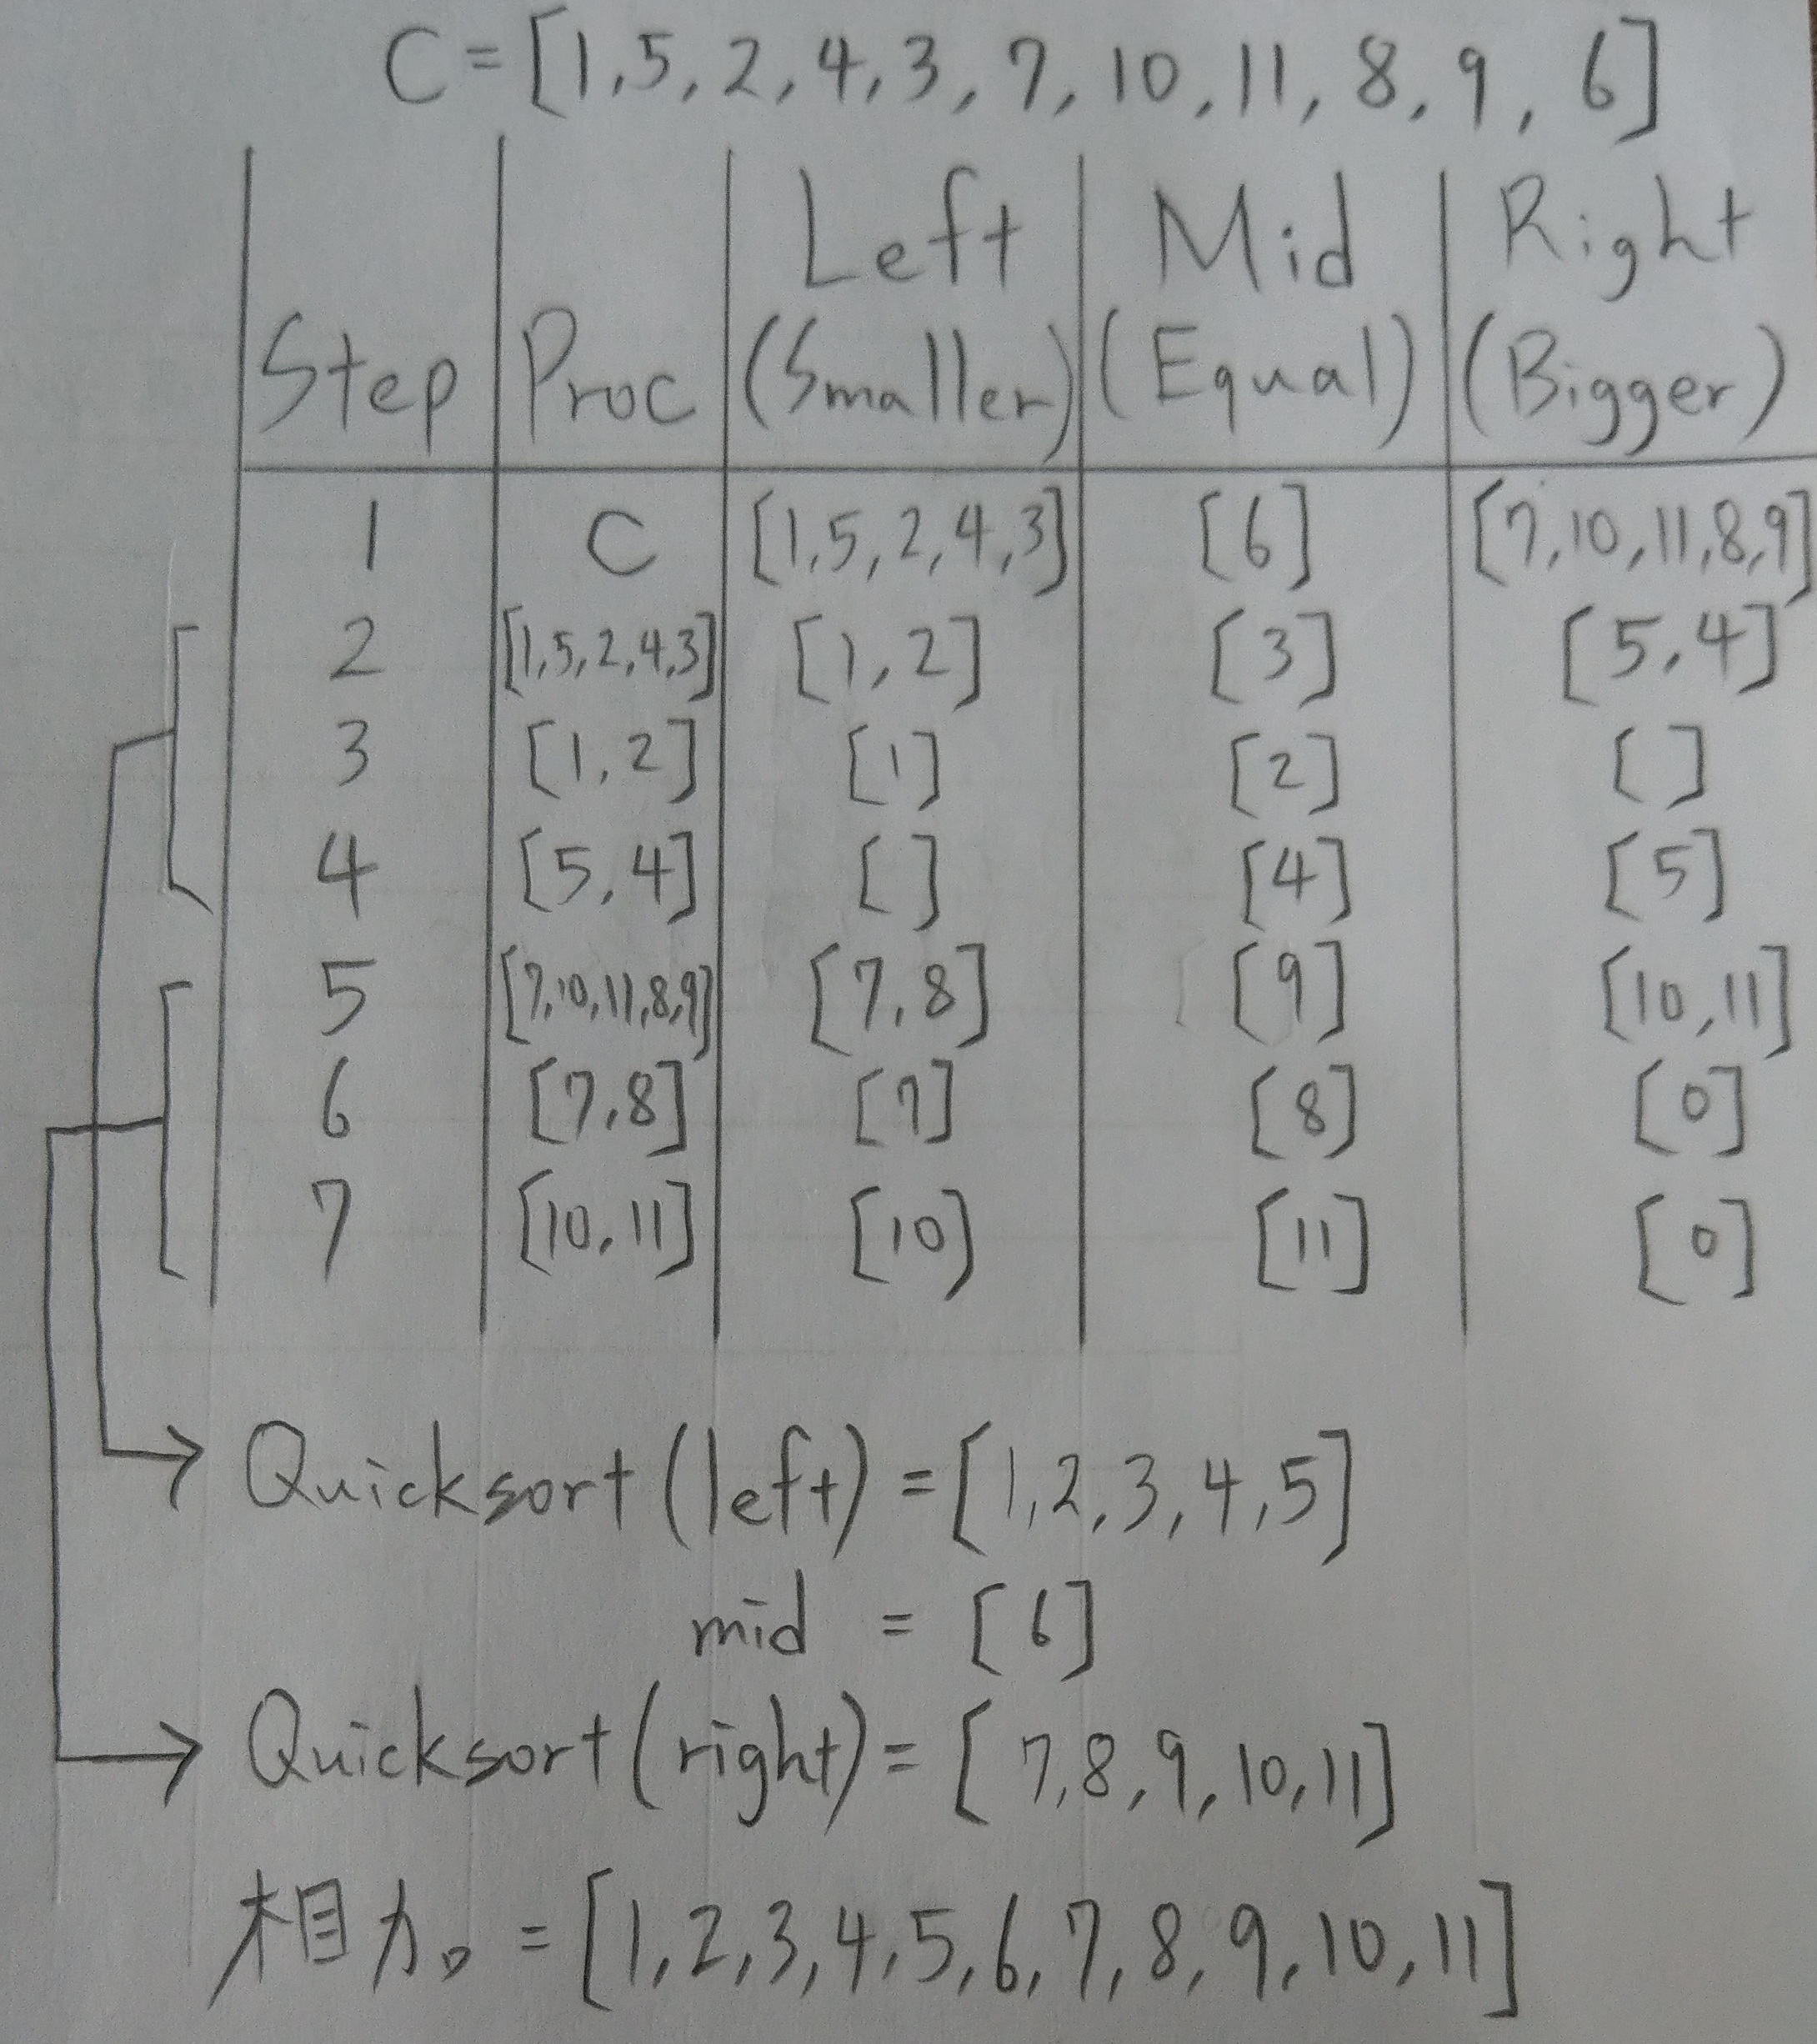 C=[1,5,2,4,3,7,10,11,8,9,6]
Left Mid Right
Step Proc (Smaller) (Equal) (Bigger)
1 C [1,5,2,4,3] [6] [7,10,11,8,9]
2 [1,5,2,4,3] [1,2] [3] [5,4]
3 [1,2] [1] [2] [ ]
4 [5,4] [ ] [4] [5]
5 [7,10,11,8,9] [7,8] [9] [10,11]
6 [7,8] [7] [8] [0]
7 [10,11] [10] [11] [0]
Quicksort(left)=[1,2,3,4,5]
mid = [6]
Quicksort(right)=[7,8,9,10,11]
相加=[1,2,3,4,5,6,7,8,9,10,11]